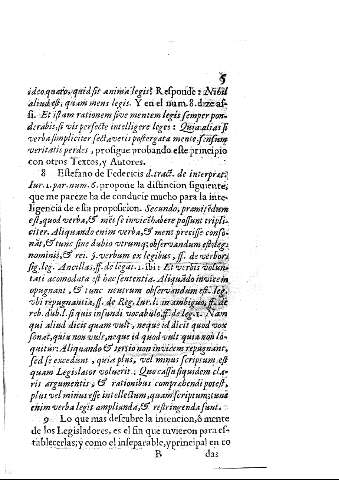 5
ideo quæro, quid sit anima legis? Responde: Nihil
aliud est, quam mens legis. Y en el num. 8. dize as-
si. Et istam rationem sive mentem legis semper pon-
derabis, si vis perfecte intelligere leges: Quia alias si
verba simpliciter sectaveris postergata mente, sensum
veritatis perdes, prosigue probando este principio
con otros Textos, y Autores.
8 Estefano de Federicis d. tract. de interpret.
Iur. 1. par. num. 6. propone la distincion siguiente,
que me parece ha de conducir mucho para la inte-
ligencia de esta proposicion. Secundo, præmittendum
est, quod verba, & mēs se invicē habere possunt tripli-
citer. Aliquando enim verba, & mens precisse conso-
nāt, & tunc sine dubio utrumq; observandum est leg.
nominis, & res §. verbum ex legibus, ff. de verbor.
sig. leg. Ancillas, ff. de legat. 1. ibi: Et verbis volun-
tati acomodata est hæc sententia. Aliquādo invicem
opugnant, & tunc neutrum observandum est. leg.
vbi repugnantia, ff. de Reg. Iur. l. in ambiguo, ff. de
reb. dub. l. si quis insundi vocabulo, ff. de leg. 1. Nam
qui aliud dicit quam vult, neque id dicit quod vox
sonat, quia non vult, neque id quod vult quia non lo-
quitur: Aliquando & tertio non invicem repugnant,
sed se excedunt, quia plus, vel minus scriptum est
quam Legislator voluerit: Quo casu si quidem cla-
ris argumentis, & rationibus comprehendi potest,
plus vel minus esse intellectum, quam scriptum; tunc
enim verba legis amplianda, & restringenda sunt.
9 Lo que mas descubre la intencion, ò mente
de los Legisladores, es el fin que tuvieron para es-
tablecerlas; y como el inseparable, y principal en co
B das